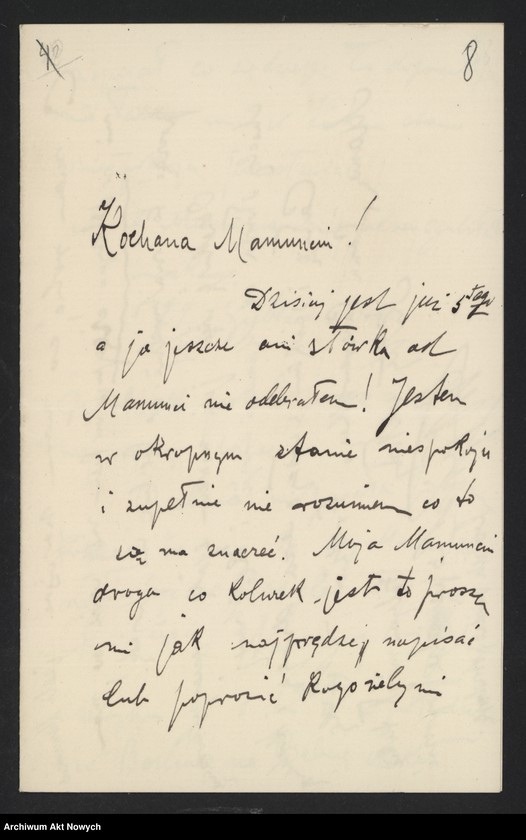 8
Kochana Mamuniu!
Dzisiaj jest już 5tego
a ja jeszcze ani słówka od
Mamuni nie odebrałem! Jestem
w okropnym stanie niespokoju
i zupełnie nie rozumiem co to
się ma znaczeć. Moja Mamuniu
droga co kolwek jest to proszę
mi jak najprędzej napisać
lub poprosić kogo żeby mi
Archiwum Akt Nowych